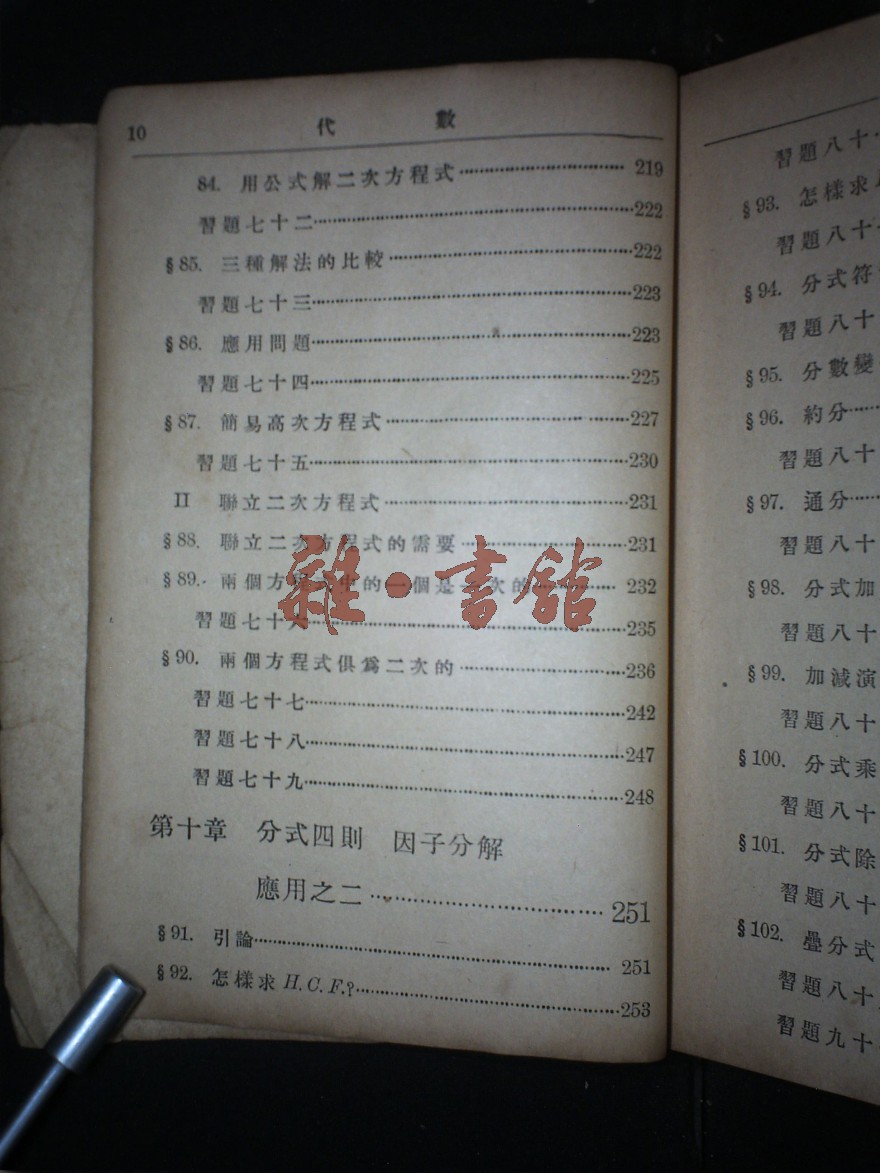 10 代 數
84. 用公式解二次方程式 219
習題七十二 222
§85. 三種解法的比較 222
習題七十三 223
§86. 應用問題 223
習題七十四 225
§87. 簡易高次方程式 227
習題七十五 230
II 聯立二次方程式 231
§88. 聯立二次方程式的需要 231
§89. 兩個方程式中的一個是一次的 232
習題七十六 235
§90. 兩個方程式俱爲二次的 236
習題七十七 242
習題七十八 247
習題七十九 248
第十章 分式四則 因子分解
應用之二 251
§91. 引論 251
§92. 怎樣求 H.C.F.? 253
雜·書館
習題八十
§93. 怎樣求
習題八十
§94. 分式符
習題八十
§95. 分數變
§96. 約分
習題八十
§97. 通分
習題八十
§98. 分式加
習題八十
§99. 加減演
習題八十
§100. 分式乘
習題八十
§101. 分式除
習題八十
§102. 疊分式
習題八十
習題九十